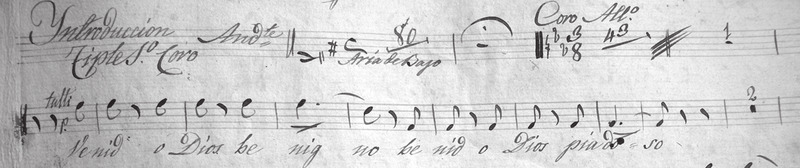 Yntroducción And.te 80 Coro All.o
Tiple S.o Coro Aria de Bajo 3 8 43 1
tutti 2
p.
Venid o Dios be nig no be nid o Dios piado = so